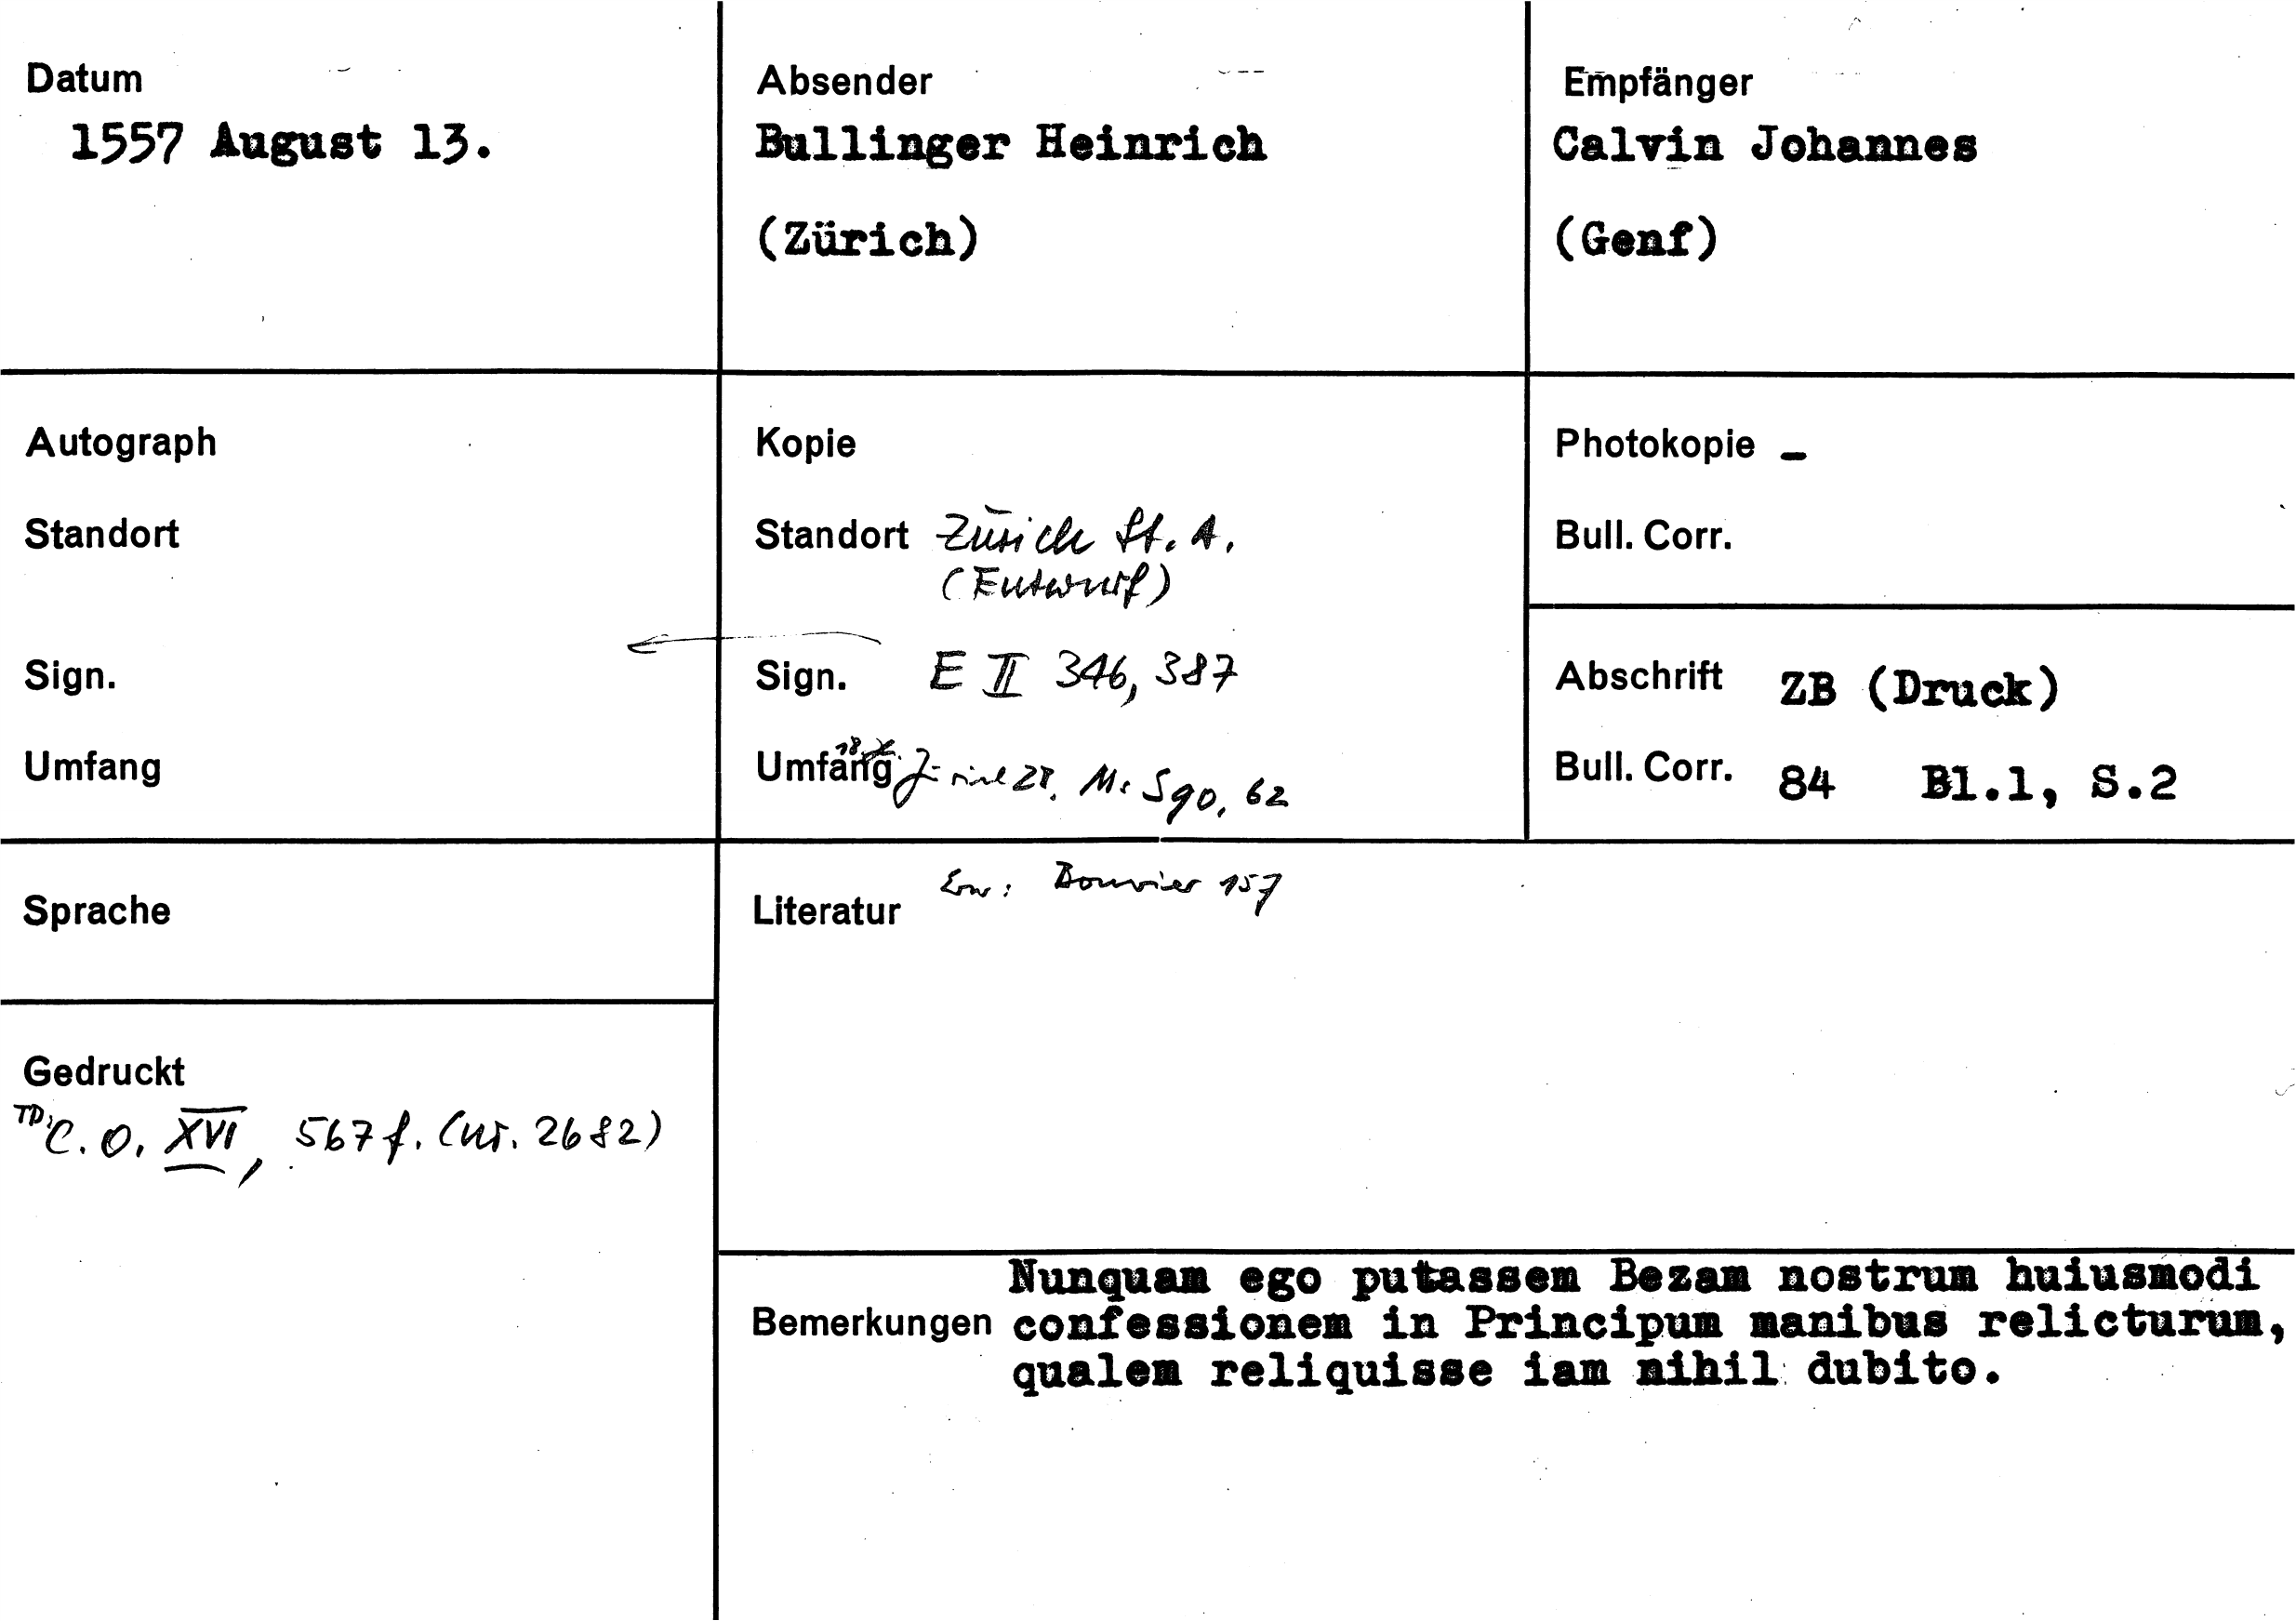 Datum
1557 August 13.
Absender
Bullinger Heinrich
(Zürich)
Empfänger
Calvin Johannes
(Genf)
Autograph
Standort
Sign.
Umfang
Kopie
Standort Zürich St. A.
(Entwurf)
Sign. E II 346, 387
Umfang ZB. Ms S 90, 62
Photokopie -
Bull. Corr.
Abschrift ZB (Druck)
Bull. Corr. 84 Bl.1, S.2
Sprache
Gedruckt
TD: C. O. XVI, 567 f. (nr. 2682)
Literatur Erw: Bouvier 157
Bemerkungen
Nunquam ego putassem Bezam nostrum huiusmodi
confessionem in Principum manibus relicturum,
qualem reliquisse iam nihil dubito.